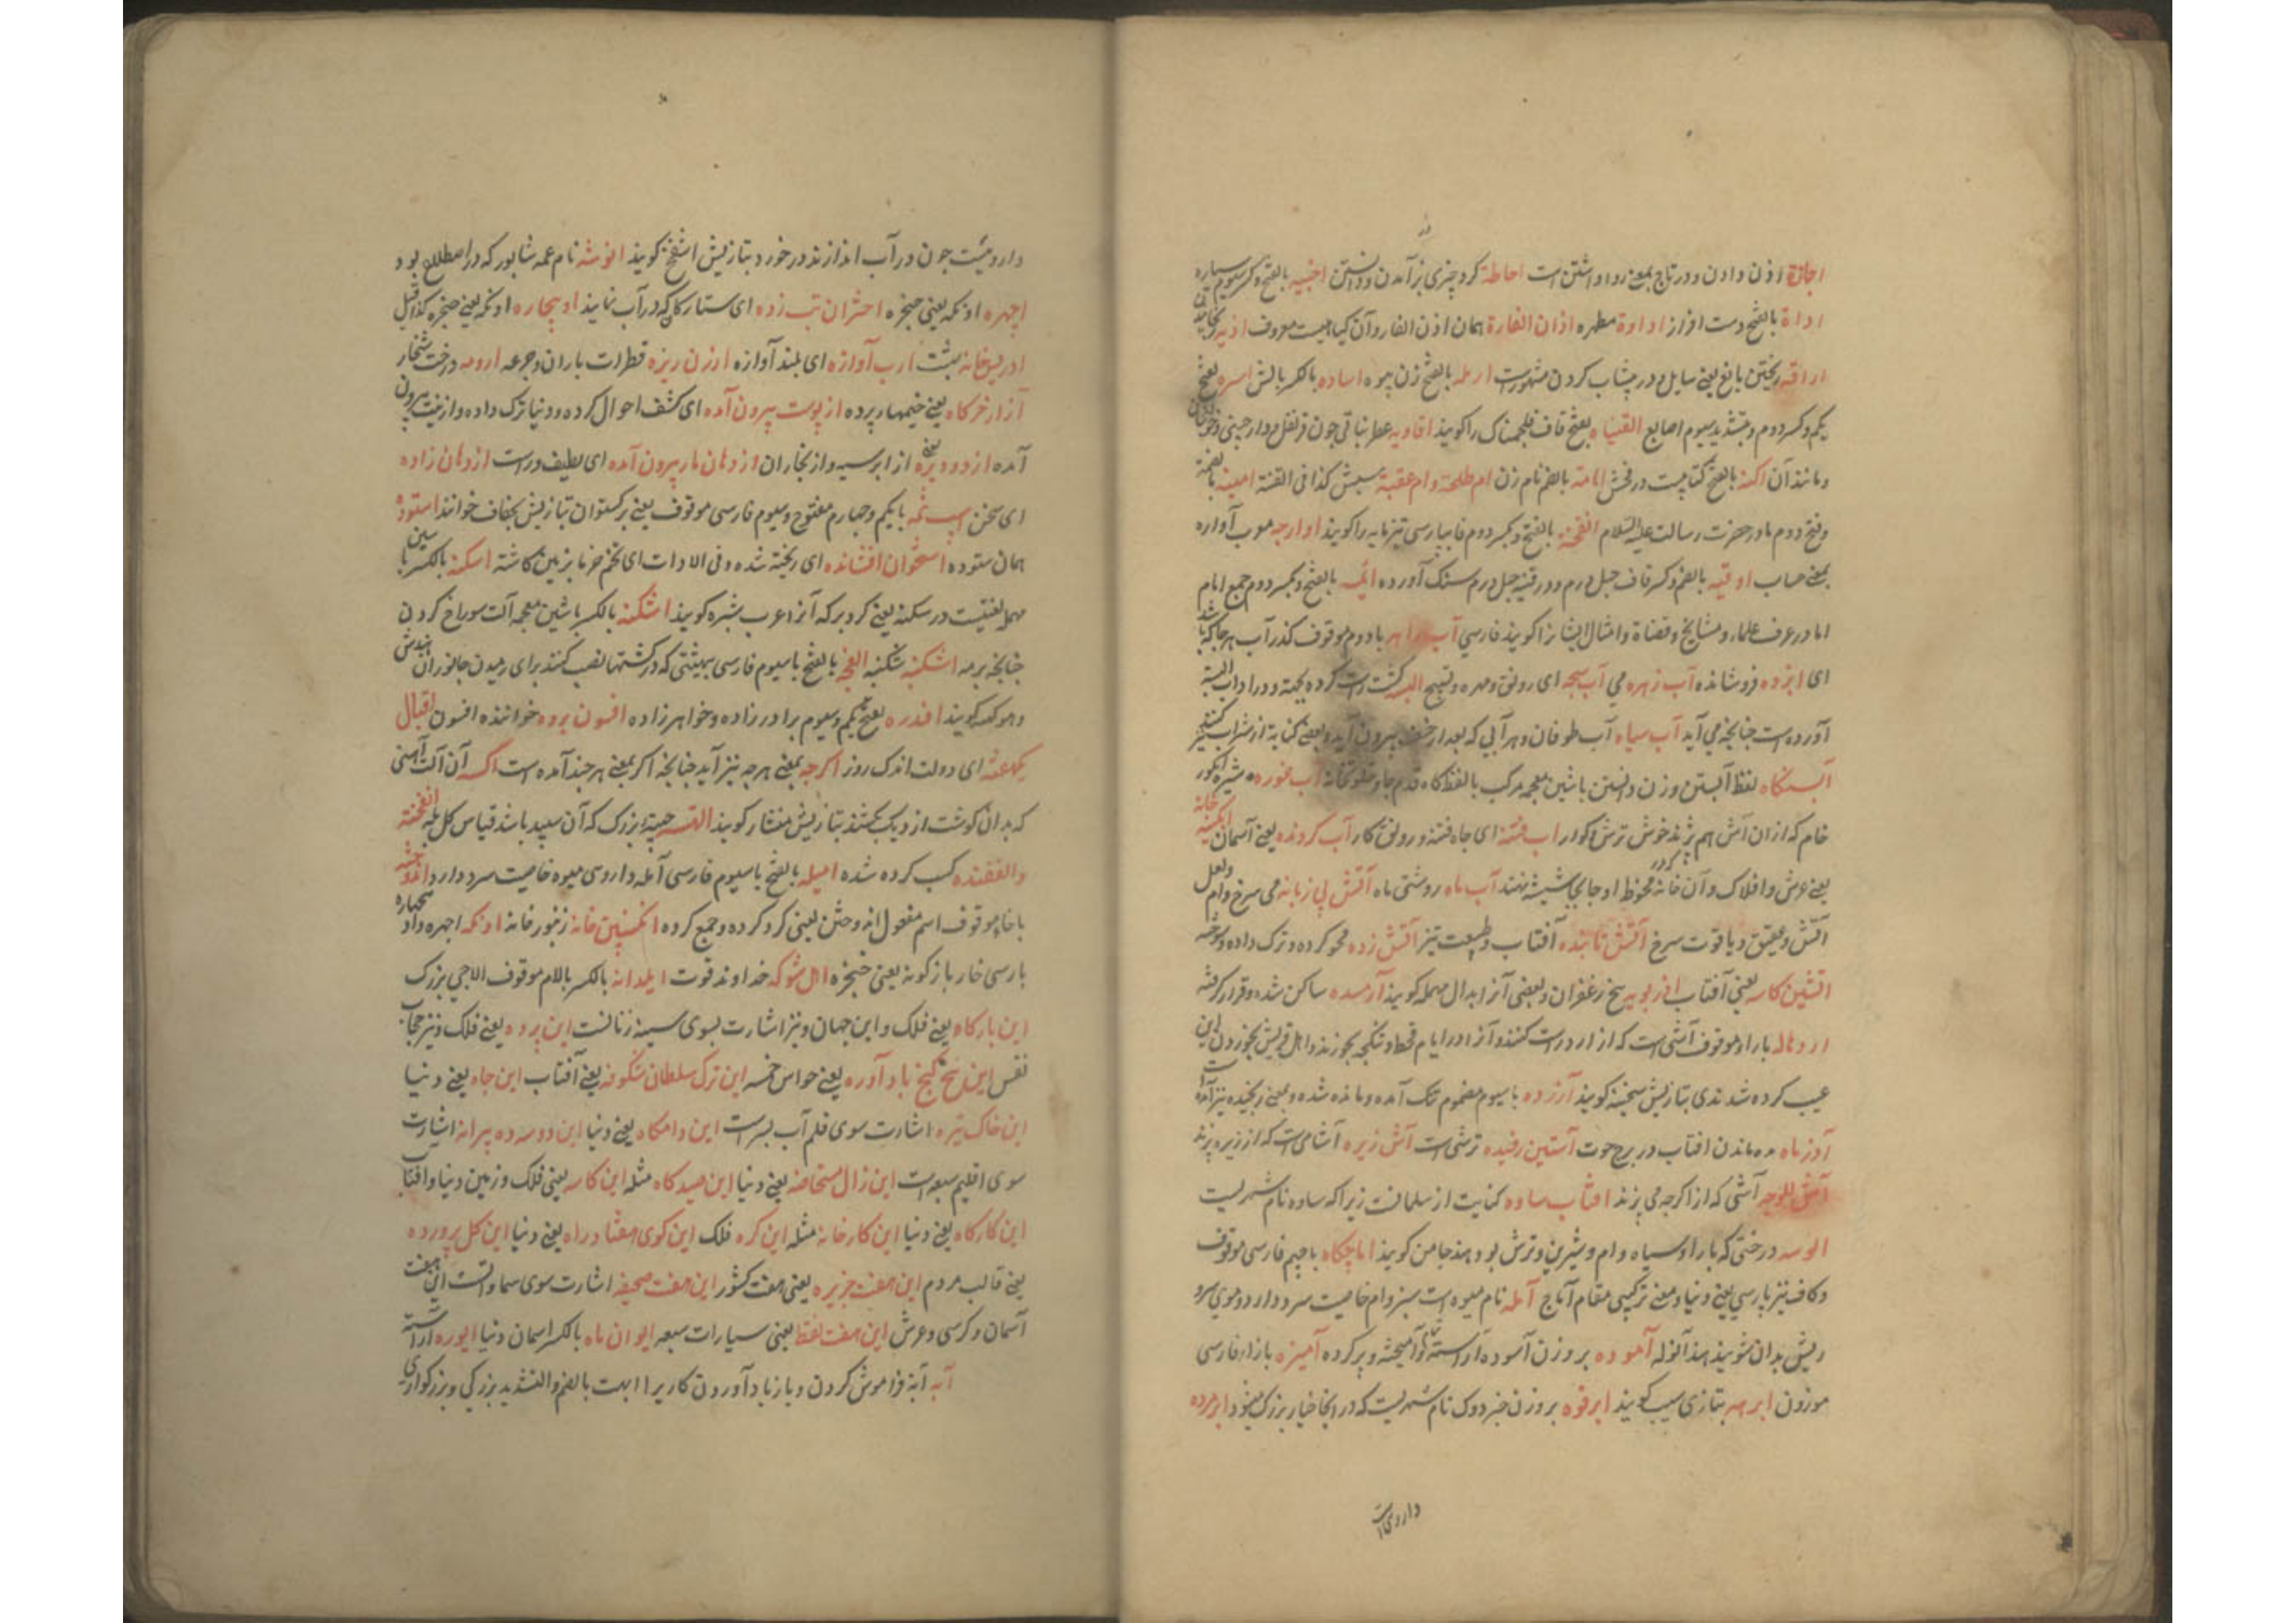 اجازة اذن دادن و در تاج بمعنی روا داشتن است احاطة کرد چیزی بر آمدن و دانستن اخبیه بالفتح و کسر سیوم سیاره
اداة بالفتح دست افزار اداوة مطهره اذان الفارة همان اذن الفار و آن کیاهیست معروف اذیه
اراقه ریختن بایغ یعنی سایل و در پیشاب کردن مشهورست ارمله بالفتح زن بیوه اساده بالکسر بالش اسره بفتح
یکم و کسر دوم و بتشدید سیوم اصابع القنیاه بفتح قاف فلجمشک را کویند افاویه عطر نباتی چون قرنفل و دارچینی و جوز
و مانند آن اکنه بالفتح کتابیست در فحش امامة بالضم نام زن ام طلحة و ام عقبة سپش کذا فی القنیة امینه بالضمة
و فتح دوم مادر حضرت رسالت علیه السلام انفحه بالفتح و بکسر دوم فا بپارسی نیز مایه را کویند اوارجه معرب آواره
بمعنی حساب اوقیه بالضم و کسر قاف چهل درم و در قنیه چهل درم سنک آورده ائمه بالفتح و بکسر دوم جمع امام
اما در عرف علماء و مشایخ و قضاة و امثال ایشان را کویند فارسی آب راهه با دوم موقوف کذر آب هر جا که باشد
ای ابزده فروشانده آب زهره می آب سبحه ای رونق و مهره و تسبیح
آورده است چنانچه می آید آب سیاه آب طوفان و هر آبی که بعد از خسف بیرون آید و بعنی کنایة از شراب کنند
آبستنکاه لفظ آبستن وزن دانستن با شین معجمه مرکب با لفظ کاه قدم جا و خلوتخانه آب غوره شیره انکور
خام که از ان آش هم پزند خوش ترش کوار اب فتنه ای جاه فتنه و رونق کار آب کرونده یعنی آسمان ابکینه خانه
یعنی عرش و افلاک و آن خانهٔ مخروط او جابجا شیشه نهند آب ماه روشنی ماه آتش بی زبانه می سرخ و ام ولعل
آتش و عقیق و یاقوت سرخ آتش تابنده آفتاب و طبیعت تیز آتش زده محو کرده و ترک داده و سوخته
اتشین کاسه یعنی آفتاب اذربویه بیخ زعفران و بعضی آنرا بدال مهمله کویند آرمیده ساکن شده و قرار کرفته
اردهاله با راء موقوف آشی است که از ارد راست کنند و آنرا در ایام قحط و تنکی بخورند و اهل قریش بخوردن این
عیب کرده شدندی بتازیش سخینه کویند آزرده با سیوم مضموم تنک آمده و مانده شده و بمعنی رنجیده نیز آمده است
آذرماه ماه ماندن افتاب در برج حوت آستین رفیده ترشی است آش زیره آشامی است که از زیره پزند
آش للوجه آشی که از اکرجه می پزند افتاب ساوه کنایت از سلمانست زیرا که ساوه نام شهریست
الوسه درختی که باراو سیاه وام و شیرین و ترش بود هند جامن کویند اماجکاه با جیم فارسی موقوف
و کاف نیز پارسی یعنی دنیا و معنی ترکیبی مقام آماج آمله نام میوه است سبز وام خاصیت سرد دارد و موی سر و
ریش بدان شویند هند آنوله آموده بر وزن آسوده آراسته و آمیخته و پر کرده آمیزه با زاء فارسی
موزون ابرهه بتازی سیب کویند ابرقوه بر وزن جز دوک نام شهریست که در انجا خیار بزرک میشود ابرمرده
دارویی است
دارویست چون در آب اندازند در خورد بتازیش اشفنج کویند انوشه نام عمه شاپور که در اصطلاع بود
اچهره اونکه یعنی چنجره اختران تب زده ای ستارکان که در آب نمایند اویچاره اونکه یعنی چنجره کذا قیل
ادریسخانه بهشت ارب آوازه ای بلند آوازه ارزن ریزه قطرات باران و جرعه ارومه درخت شنجار
آزار خرکاه یعنی خیمهای پرده از پوست بیرون آمده ای کشف احوال کرده و دنیا ترک داده و از نیت بیرون
آمده از دود بره یعنی از ابر سیه و از بخاران از دهان مار بیرون آمده ای لطیف و راست از دهان زاده
ای سخن اسپ نمه با یکم و چهارم مفتوح و سیوم فارسی موقوف یعنی برکستوان بتازیش بحفاف خوانند استوده
همان ستوده استخوان افشانده ای ریخته شده و فی الادات ای تخم خرما بزمین کاشته اسکنه بالکسر با سین
مهمل لغتیست در سکنه یعنی کردبر که آنرا عرب بشره کویند اشکنه بالکسر با شین معجمه آلت سوراخ کردن
چنانچه برمه اشکنبه شکنبه الفچه بالفتح با سیوم فارسی بهیئتی که در کشتها نصب کنند برای رمیدن جانوران هندش
دهوکهه کویند افدره بفتح یکم و سیوم برادر زاده و خواهر زاده افسون برده خواننده افسون اقبال
یکهفته ای دولت اندک روز اکرچه بمعنی هرچه نیز آید چنانچه اکر بمعنی هر چند آمده است اکسه آن آلت آهنی
که بدان کوشت از دیک بکشند بتازیش منشار کویند القسه حیة بزرک که آن سپید باشد قیاس کل بله انفخته
والفقتده کسب کرده شده امیله بالفتح با سیوم فارسی آمله داروی میوه خاصیت سرد دارد اندوخته
با خاء موقوف اسم مفعول اندوختن یعنی کرد کرده و جمع کرده انکبین خانه زنبور خانه اونکه اجهره و اویچهاره
پارسی خار بازکونه یعنی چنجره اهل شوکه خداوند قوت ایلدانه بالکسر با لام موقوف الاچی بزرک
این بارکاه یعنی فلک و این جهان و نیز اشارت بسوی سینه زنانست این پرده یعنی فلک و نیز حجاب
نفس این پنج کنج باد آورده یعنی حواس خمسه این ترک سلطان شکوه یعنی آفتاب این جاه یعنی دنیا
این خاک تیره اشارت سوی قلم آب بسرست این دامکاه یعنی دنیا این دوسه ده پیرانه اشارت
سوی اقلیم سبعه است این زال مستحاضه یعنی دنیا این صیدکاه مثله این کاسه یعنی فلک و زمین دنیا و افتاب
این کارکاه یعنی دنیا این کارخانه مثله این کره فلک این کوی هفتاد راه یعنی دنیا این کل پرورده
یعنی قالب مردم این هفت جزیره یعنی هفت کشور این هفت صحیفه اشارت سوی سماواتست این هفت
آسمان و کرسی و عرش این هفت لفظ یعنی سیارات سبعه ایوان ماه بالکسر اسمان دنیا ایوره آراسته
آبه آبة فراموش کردن و باز یاد آوردن کاریرا ابهت بالضم والتشدید بزرکی و بزرکواری